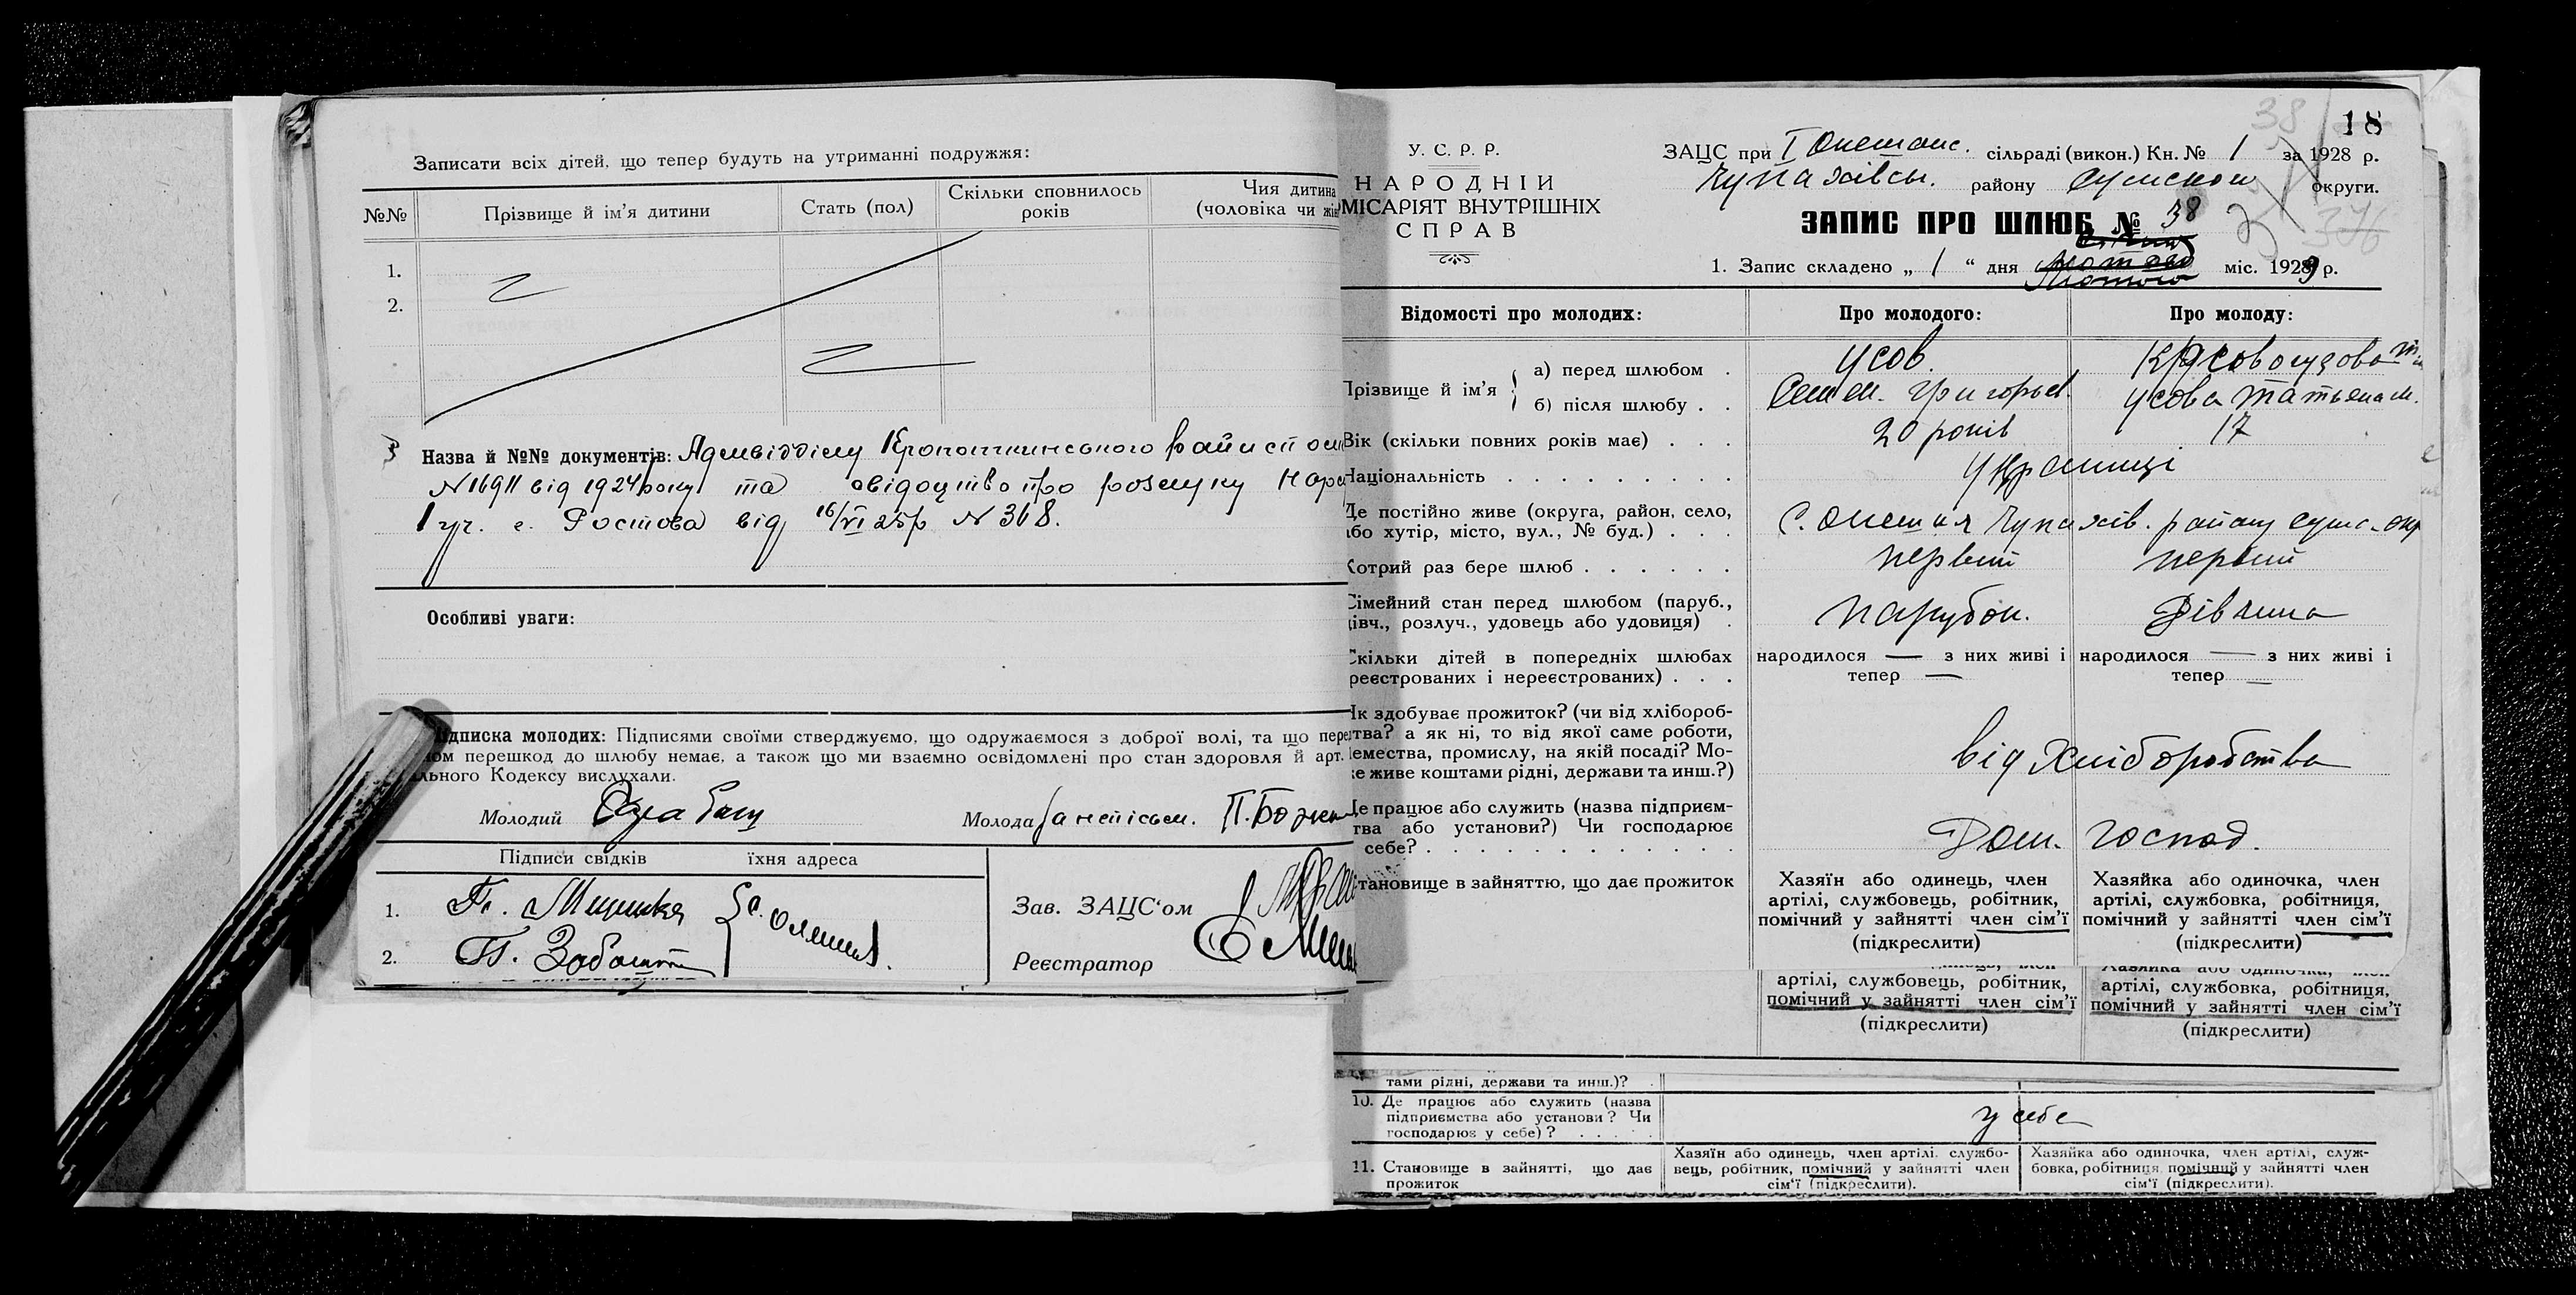 Записати всіх дітей, що тепер будуть на утриманні подружжя:
№№ Прізвище й ім'я дитини Стать (пол) Скільки сповнилось років Чия дитина (чоловіка чи
1.
2.
Назва й №№ документів: Адмвідділу Кропоткинського
N 16911 від 1924 року та свідоцтво про розлуку
1 уч. г. Ростова від 16/VI 25 р N 368.
Особливі уваги:
підписка молодих: Підписями своїми стверджуємо, що одружаємося з доброї волі, та що
перешкод до шлюбу немає, а також що ми взаємно освідомлені про стан здоровля й арт.
Кодексу вислухали.
Молодий Молода
Підписи свідків їхня адреса
1.
2.
Зав. ЗАЦС'ом
Реєстратор
18
38
У. С. Р. Р.
НАРОДНІЙ
МІСАРІЯТ ВНУТРІШНІХ
СПРАВ
ЗАЦС при І сільраді (викон.) Кн. № 1 за 1928 р.
району округи.
ЗАПИС ПРО ШЛЮБ № 38
1. Запис складено „ 1 “ дня Лютого міс. 1929 р.
Відомості про молодих: Про молодого: Про молоду:
Прізвище й ім'я
а) перед шлюбом . Усов.
б) після шлюбу . . Семен. Григорьев. Усова Татьяна М.
Вік (скільки повних років має) . . . 20 років 17
Національність . . . . . . . . . Українці
Де постійно живе (округа, район, село,
або хутір, місто, вул., № буд.) . . . С. Олешня Чупахів. району Сумс. окр
Котрий раз бере шлюб . . . . . . первий первий
Сімейний стан перед шлюбом (паруб.,
дівч., розлуч., удовець або удовиця) . Парубок. Дівчина
Скільки дітей в попередніх шлюбах
реєстрованих і нереєстрованих) . . .
народилося — з них живі і тепер —
народилося — з них живі і тепер —
Як здобуває прожиток? (чи від хлібороб-
ства? а як ні, то від якої саме роботи,
ремества, промислу, на якій посаді? Мо-
же живе коштами рідні, держави та инш.?)
від Хліборобства
Де працює або служить (назва підприєм-
тва або установи?) Чи господарює
себе? . . . . . . . . . . . . . Дом. господ.
становище в зайняттю, що дає прожиток
Хазяїн або одинець, член
артілі, службовець, робітник,
помічний у зайнятті член сім'ї
(підкреслити)
Хазяйка або одиночка, член
артілі, службовка, робітниця,
помічний у зайнятті член сім'ї
(підкреслити)
артілі, службовець, робітник,
помічний у зайнятті член сім'ї
(підкреслити)
Хазяйка або одиночка, член
артілі, службовка, робітниця,
помічний у зайнятті член сім'ї
(підкреслити)
тами рідні, держави та инш.)?
10. Де працює або служить (назва
підприємства або установи? Чи
господарює у себе)? . . . . . у себе
11. Становище в зайнятті, що дає
прожиток
Хазяїн або одинець, член артілі, службо-
вець, робітник, помічний у зайнятті член
сім'ї (підкреслити).
Хазяйка або одиночка, член артілі, служ-
бовка, робітниця, помічний у зайнятті член
сім'ї (підкреслити).